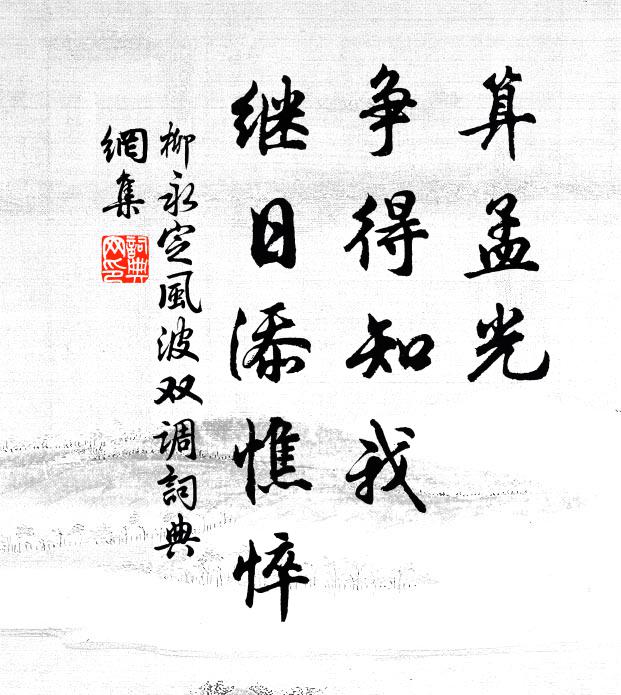 算孟光
争得知我
继日添憔悴
柳永定風波双调詞典
網集
詞典
网印